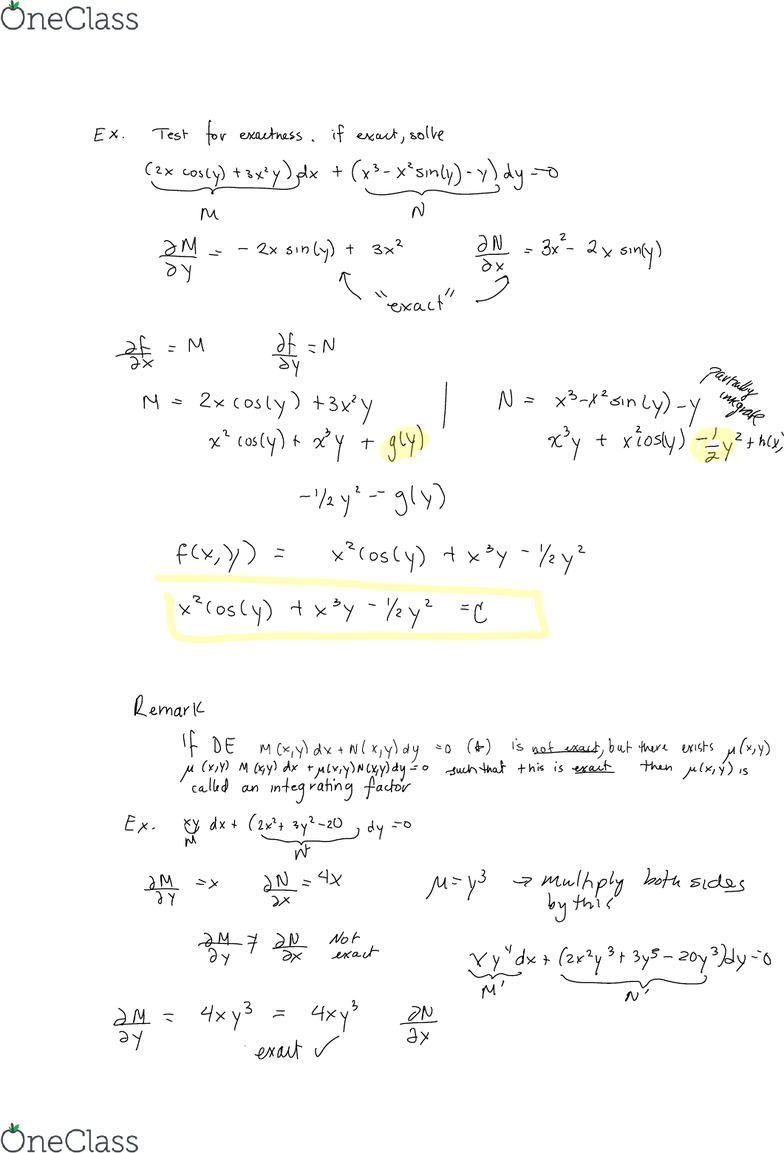 OneClass
Ex. Test for exactness. if exact, solve
(2x cos(y) + 3x²y)dx + (x³ - x² sin(y) - y)dy = 0
M N
∂M/∂y = - 2x sin(y) + 3x² ∂N/∂x = 3x² - 2x sin(y)
"exact"
∂f/∂x = M ∂f/∂y = N
M = 2x cos(y) + 3x²y | N = x³ - x² sin(y) - y partially integrate
x² cos(y) + x³y + g(y) x³y + x² cos(y) - 1/2 y² + h(x)
-1/2 y² = g(y)
f(x,y) = x² cos(y) + x³y - 1/2 y²
x² cos(y) + x³y - 1/2 y² = C
Remark
If DE M(x,y) dx + N(x,y) dy = 0 (*) is not exact, but there exists μ(x,y)
μ(x,y) M(x,y) dx + μ(x,y) N(x,y) dy = 0 such that this is exact then μ(x,y) is
called an integrating factor
Ex. xy dx + (2x² + 3y² - 20) dy = 0
M N
∂M/∂y = x ∂N/∂x = 4x μ = y³ → multiply both sides
by this
∂M/∂y ≠ ∂N/∂x Not
exact
xy⁴dx + (2x²y³ + 3y⁵ - 20y³)dy = 0
M' N'
∂M/∂y = 4xy³ = 4xy³ ∂N/∂x
exact ✓
OneClass